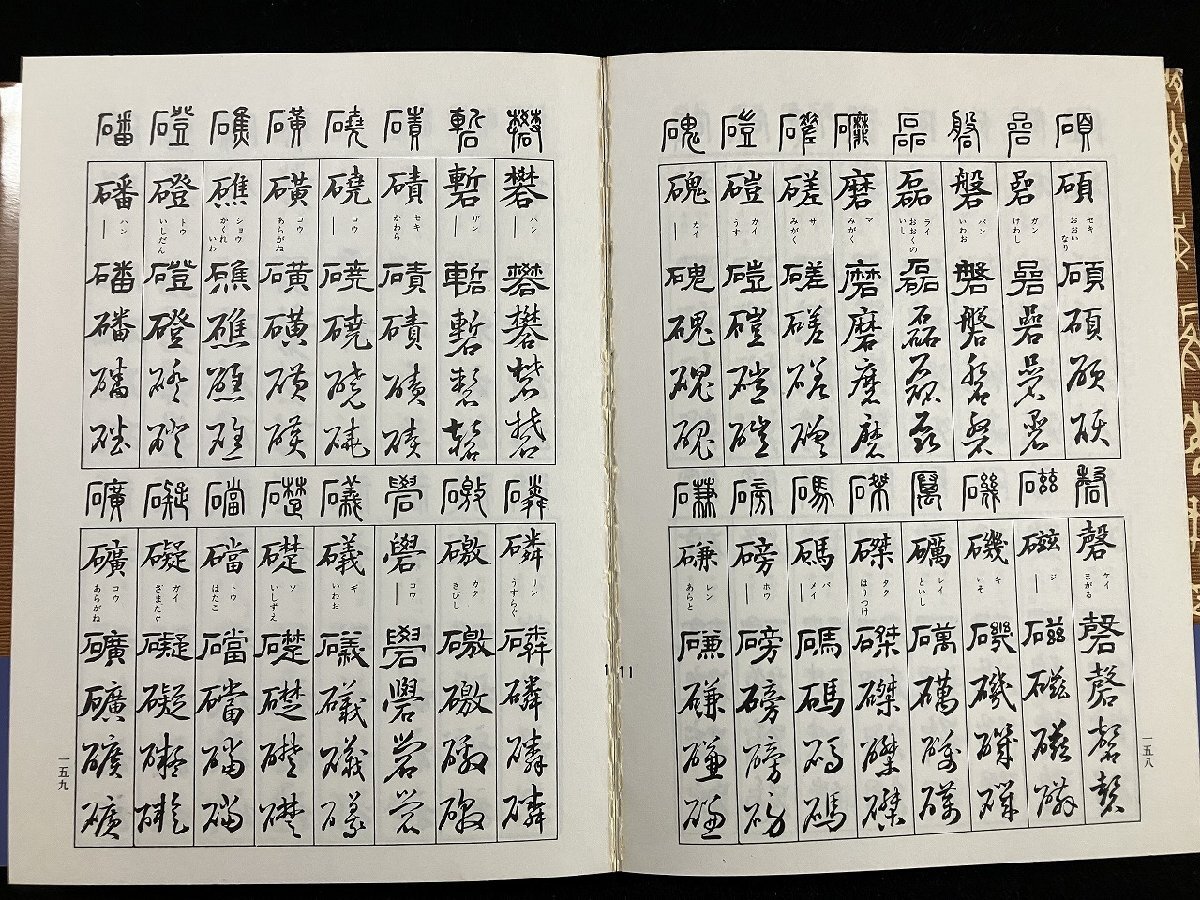 碩 碞 磐 磊 磨 磋 磑 磈
碩 碞 磐 磊 磨 磋 磑 磈
セキ おおいなり
ガン けわし
バン いわお
ライ おおくのいし
マ みがく
サ みがく
カイ うす
カイ ―
碩 碞 磐 磊 磨 磋 磑 磈
碩 碞 磐 磊 磨 磋 磑 磈
碩 碞 磐 磊 磨 磋 磑 磈
碩 碞 磐 磊 磨 磋 磑 磈
磬 磁 磯 礪 磔 碼 磅 磏
磬 磁 磯 礪 磔 碼 磅 磏
ケイ
ジ ―
キ いそ
レイ といし
タク はりつけ
バ メイ ―
ホウ ―
レン あらと
磬 磁 磯 礪 磔 碼 磅 磏
磬 磁 磯 礪 磔 碼 磅 磏
磬 磁 磯 礪 磔 碼 磅 磏
磬 磁 磯 礪 磔 碼 磅 磏
一五八
礬 磛 磧 磽 磺 礁 磴 磻
礬 磛 磧 磽 磺 礁 磴 磻
ハン ―
ザン ―
セキ かわら
コウ ―
コウ あらがね
ショウ かくれいわ
トウ いしだん
ハン ―
礬 磛 磧 磽 磺 礁 磴 磻
礬 磛 磧 磽 磺 礁 磴 磻
礬 磛 磧 磽 磺 礁 磴 磻
礬 磛 磧 磽 磺 礁 磴 磻
磷 礉 礐 礒 礎 礑 礙 礦
磷 礉 礐 礒 礎 礑 礙 礦
リン うすらぐ
カク きびし
コウ ―
ギ いわお
ソ いしずえ
トウ はたこ
ガイ さまたぐ
コウ あらがね
磷 礉 礐 礒 礎 礑 礙 礦
磷 礉 礐 礒 礎 礑 礙 礦
磷 礉 礐 礒 礎 礑 礙 礦
磷 礉 礐 礒 礎 礑 礙 礦
一五九